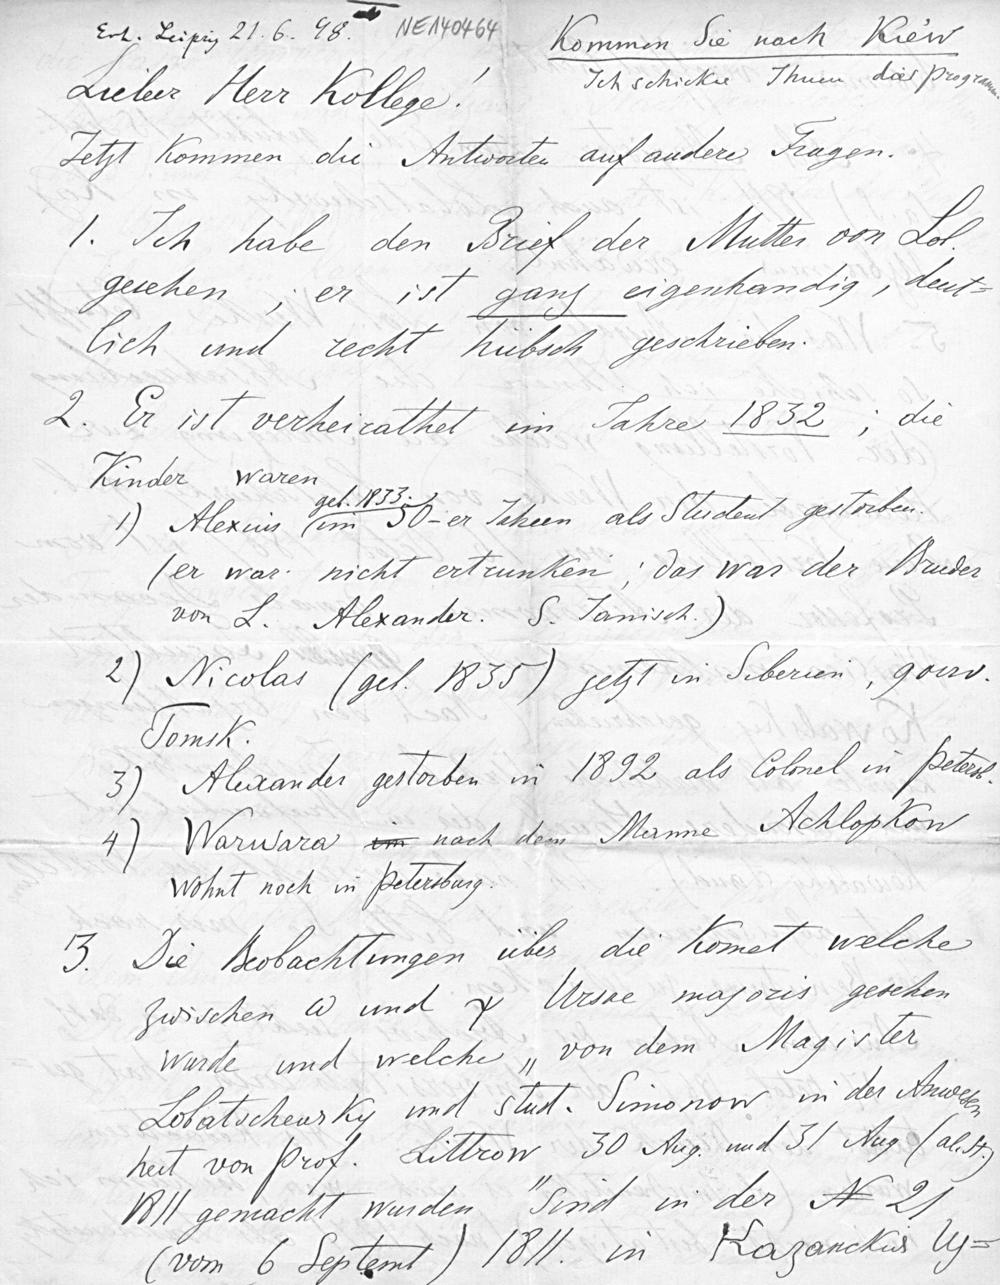 Erh. Leipzig 21.6.98.
NE140464
Kommen Sie nach Kiew
Ich schicke Ihnen das Programm
Lieber Herr Kollege!
Jetzt kommen die Antworten auf andere Fragen.
1. Ich habe den Brief der Mutter von Lob.
gesehen, er ist ganz eigenhandig, deut=
lich und recht hübsch geschrieben.
2. Er ist verheirathet im Jahre 1832; die
Kinder waren
geb. 1833.
1) Alexius (im 50-er Jahren als Student gestorben.
(er war nicht ertrunken; das war der Bruder
von L. Alexander. S. Janisch.)
2) Nicolas (geb. 1835) jetzt in Siberien, gouv.
Tomsk.
3) Alexander gestorben in 1892 als Colonel in Petersb.
4) Warwara im nach dem Manne Achlopkow
wohnt noch in Petersburg.
3. Die Beobachtungen über die Komet welche
zwischen ω und χ Ursae majoris gesehen
wurde und welche „von dem Magister
Lobatschewsky und stud. Simonow in der Anwesen
heit von Prof. Littrow 30 Aug. und 31 Aug (alt.St.)
1811 gemacht wurden" sind in der № 21
(vom 6 Septemb) 1811. in Kazanckia Iy=